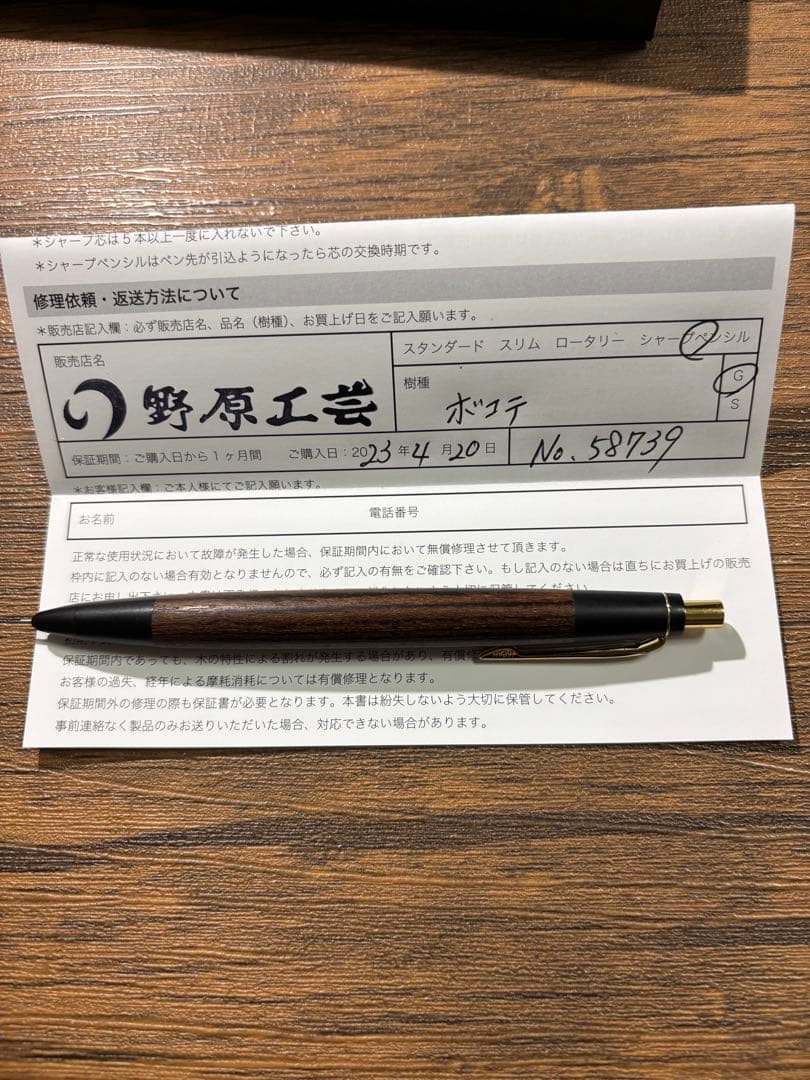 *シャープ芯は5本以上一度に入れないで下さい。
*シャープペンシルはペン先が引込ようになったら芯の交換時期です。
修理依頼・返送方法について
*販売店記入欄：必ず販売店名、品名（樹種）、お買上げ日をご記入願います。
販売店名
野原工芸
スタンダード スリム ロータリー シャープペンシル
樹種
ボコテ
G
S
保証期間：ご購入日から1ヶ月間 ご購入日：2023年4月20日
No.58739
*お客様記入欄：ご本人様にてご記入願います。
お名前 電話番号
正常な使用状況において故障が発生した場合、保証期間内において無償修理させて頂きます。
枠内に記入のない場合有効となりませんので、必ず記入の有無をご確認下さい。もし記入のない場合は直ちにお買上げの販売
店にお申し出下さい。
保証期間内であっても、木の特性による割れが発生する場合があり、有償修
お客様の過失、経年による摩耗消耗については有償修理となります。
保証期間外の修理の際も保証書が必要となります。本書は紛失しないよう大切に保管してください。
事前連絡なく製品のみお送りいただいた場合、対応できない場合があります。